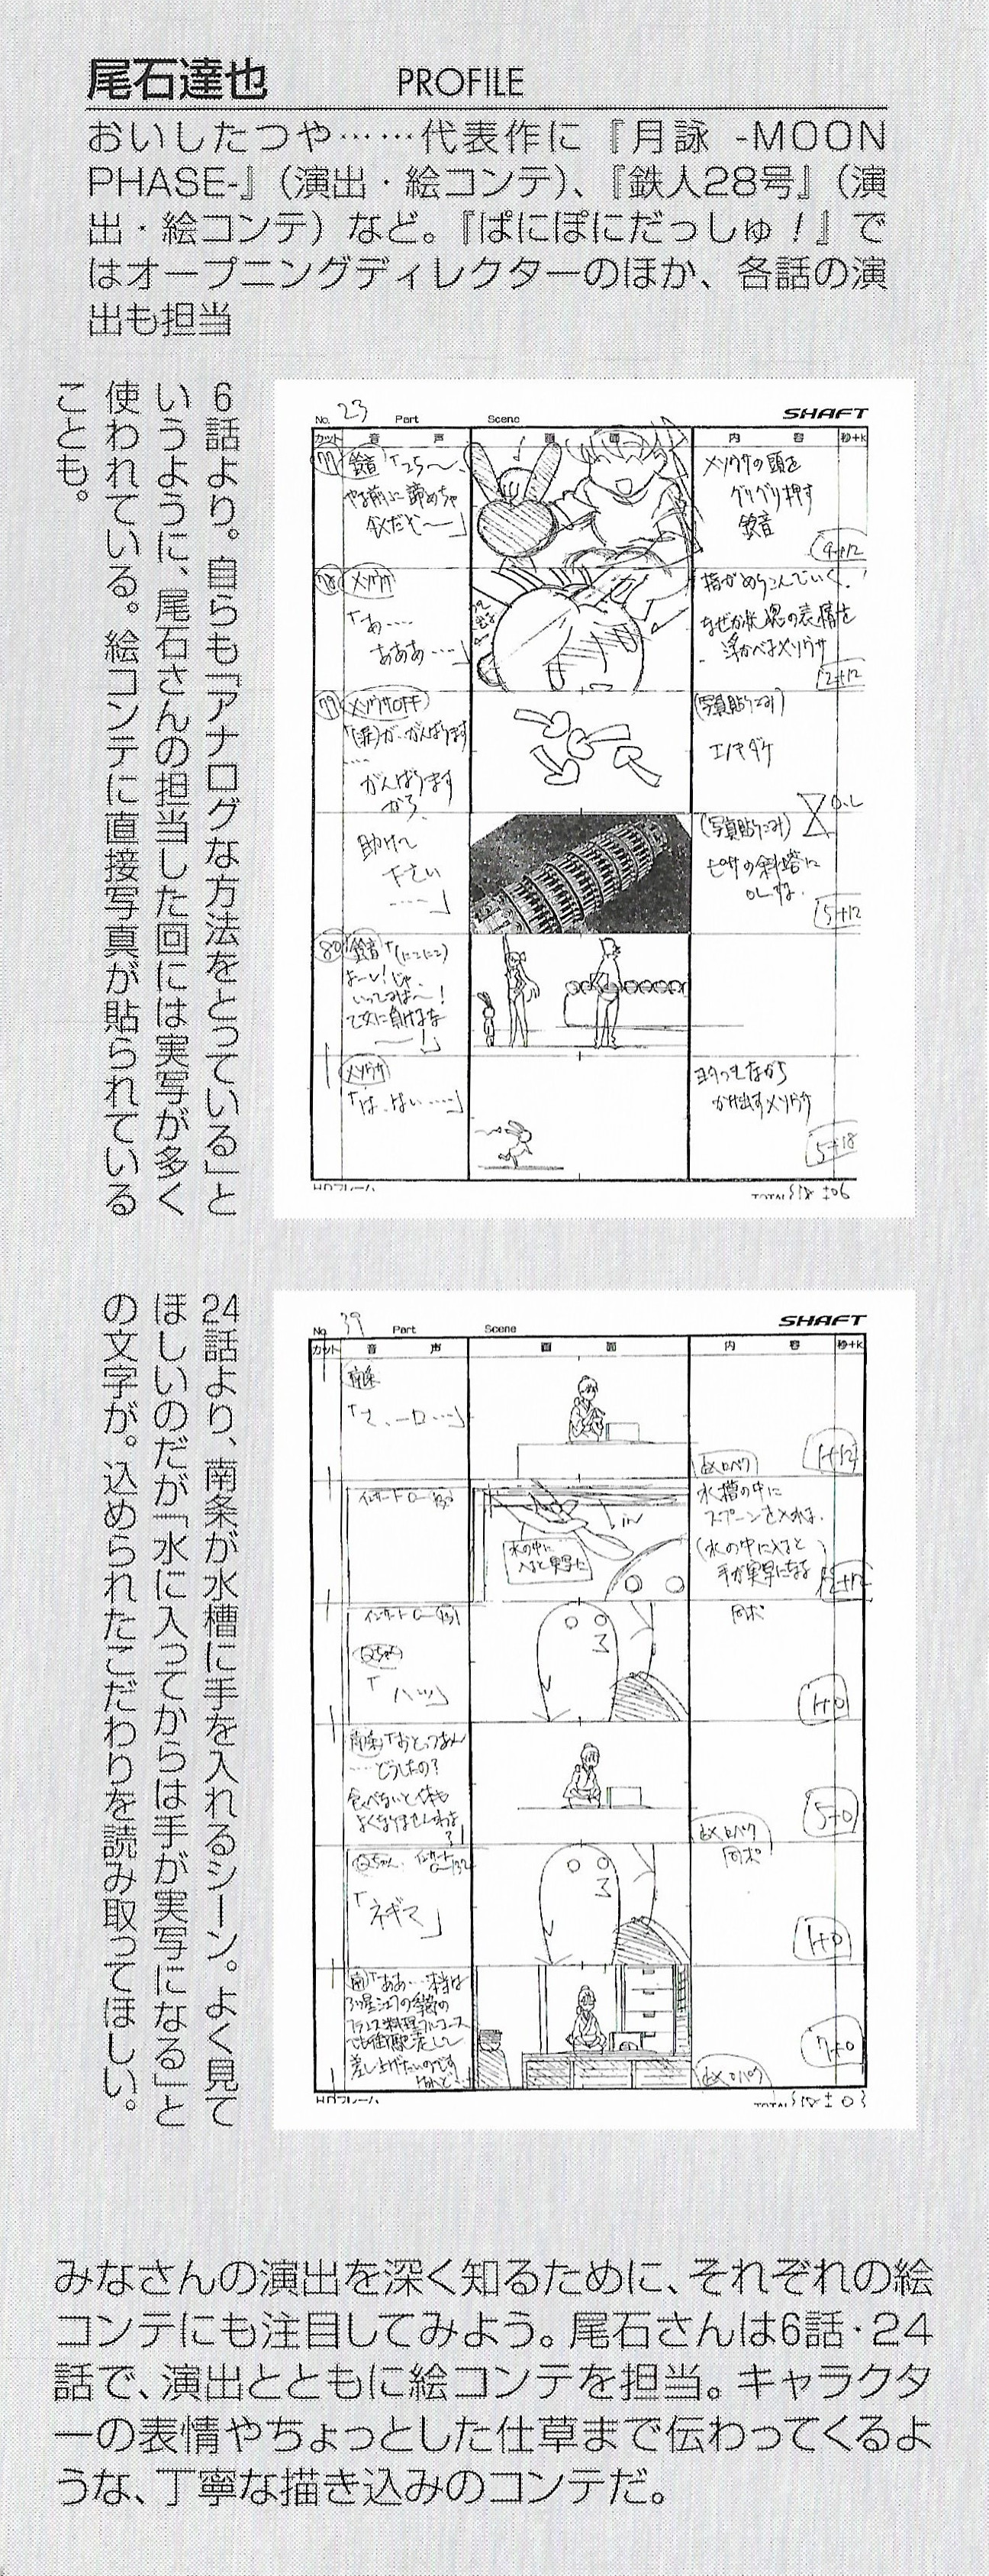 尾石達也 PROFILE
おいしたつや……代表作に『月詠 -MOON
PHASE-』（演出・絵コンテ）、『鉄人28号』（演
出・絵コンテ）など。『ぱにぽにだっしゅ！』で
はオープニングディレクターのほか、各話の演
出も担当
6話より。自らも「アナログな方法をとっている」と
いうように、尾石さんの担当した回には実写が多く
使われている。絵コンテに直接写真が貼られている
ことも。
No. 23 Part Scene SHAFT
カット 音 声 画 面 内 容 秒+k
77 鈴音
メソウサの頭を
グリグリ押す
鈴音
4+12
78 メソウサ
「あ……
あああ……」
指がめりこんでいく。
なぜか恍惚の表情を
浮かべるメソウサ
2+12
79 メソウサOFF
がんばります
から、
助けて
下さい
……」
(写真貼りこみ)
エノキダケ
O.L
(写真貼りこみ)
ピサの斜塔に
OLする。
5+12
80 鈴音「(にこにこ)
よーし！じゃ、
いってみよ〜！
乙女に負けるな
〜！」
メソウサ
「は、はい……」
ヨタつきながら
かけ出すメソウサ
5+18
HDフレーム
TOTAL
24話より、南条が水槽に手を入れるシーン。よく見て
ほしいのだが「水に入ってからは手が実写になる」と
の文字が。込められたこだわりを読み取ってほしい。
No. 39 Part Scene SHAFT
カット 音 声 画 面 内 容 秒+k
南条
1+12
水の中に
入ると実写に
in
水槽の中に
スプーンを入れる。
(水の中に入ると
手が実写になる
同ポ
「ハッ」
1+0
南条「おとっつぁん
…どうしたの？
食べないと体も
よくなりませんわよ
5+0
同ポ
「ネギマ」
1+0
7+0
HDフレーム
TOTAL
みなさんの演出を深く知るために、それぞれの絵
コンテにも注目してみよう。尾石さんは6話・24
話で、演出とともに絵コンテを担当。キャラクタ
ーの表情やちょっとした仕草まで伝わってくるよ
うな、丁寧な描き込みのコンテだ。